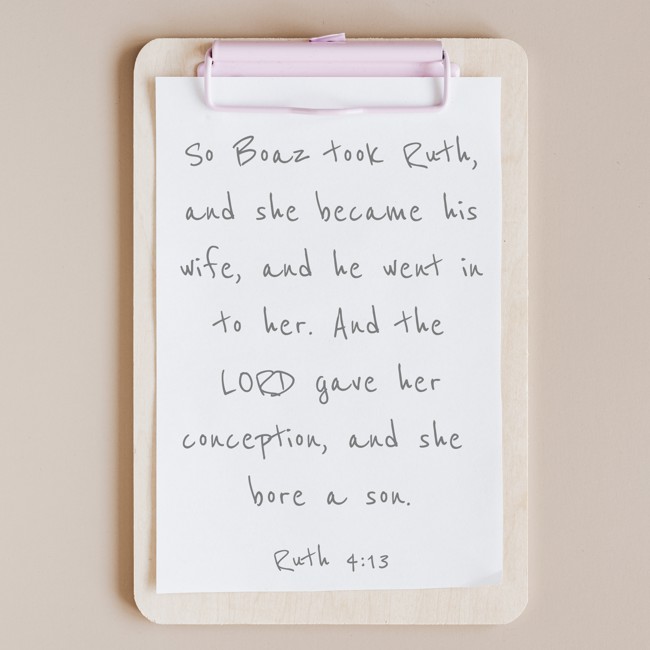 So Boaz took Ruth,
and she became his
wife, and he went in
to her. And the
LORD gave her
conception, and she
bore a son.
Ruth 4:13